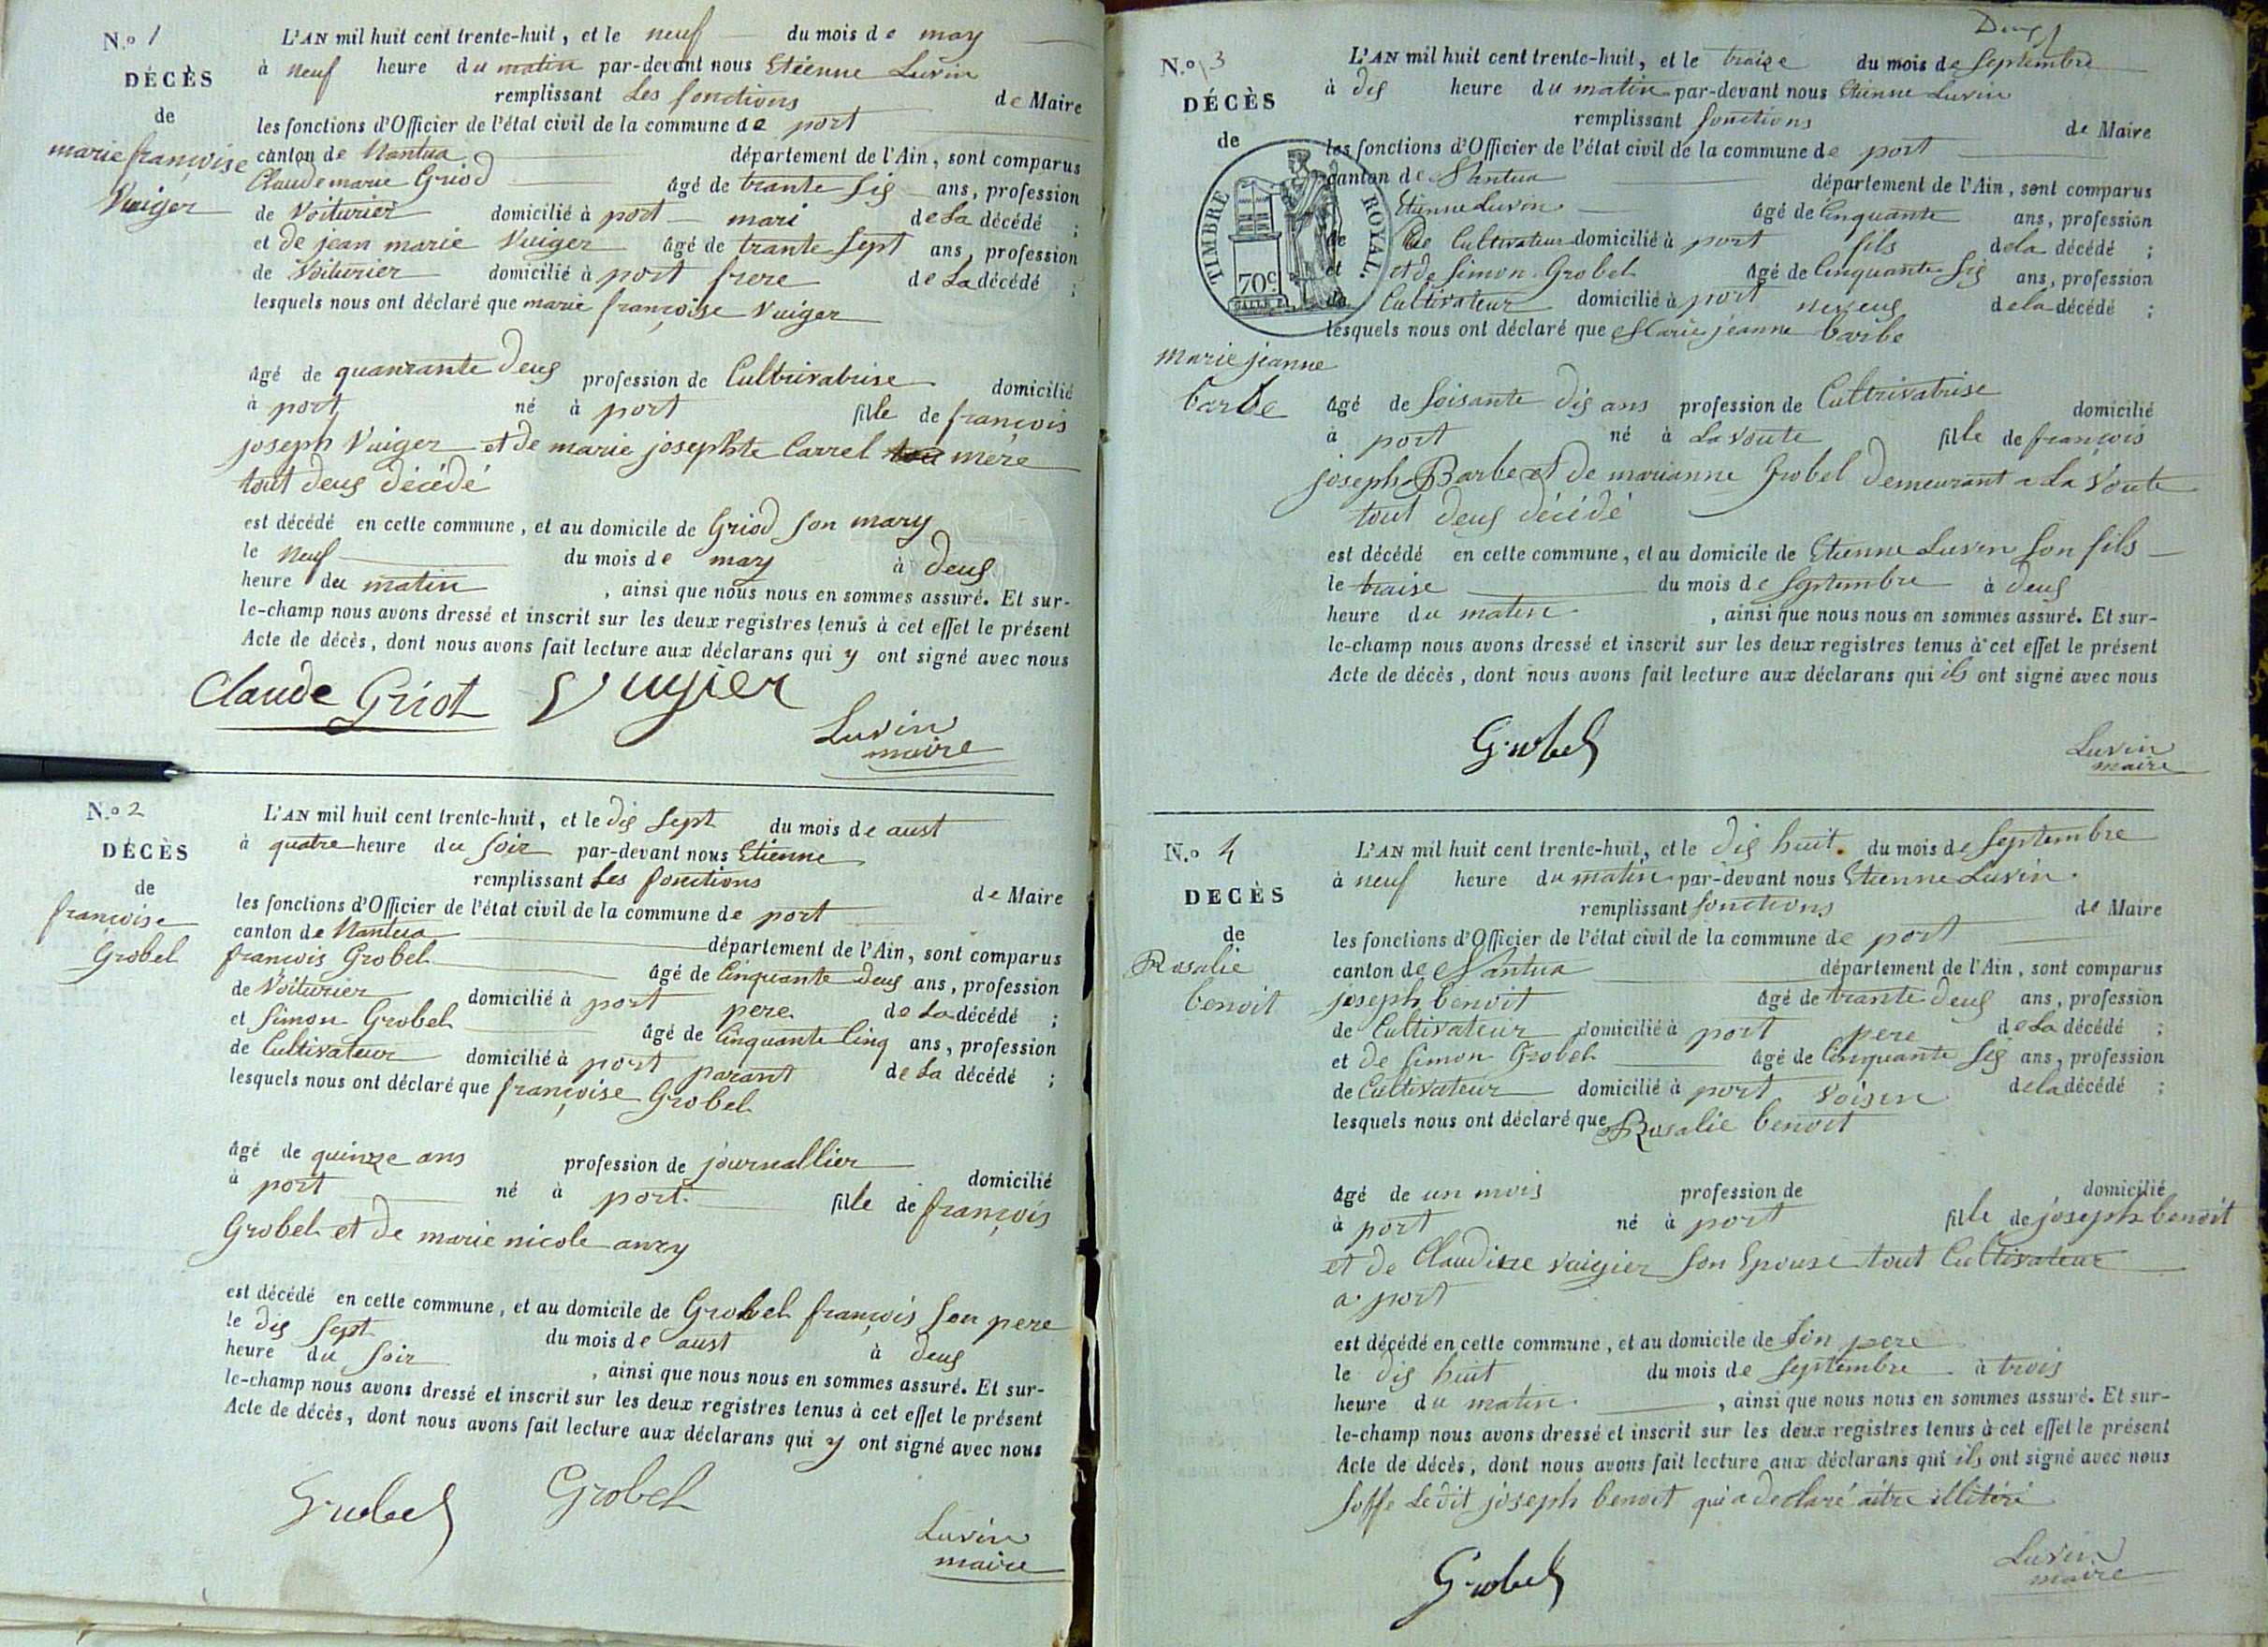 N.º 1
DÉCÈS
de
marie françoise
Vuiger
L'AN mil huit cent trente-huit, et le neuf du mois de may
à neuf heure du matin par-devant nous Etienne Luvin
remplissant Les fonctions de Maire
les fonctions d'Officier de l'état civil de la commune de port
canton de Nantua département de l'Ain, sont comparus
Claude marie Griod âgé de trante sis ans, profession
de Voiturier domicilié à port mari de La décédé ;
et de jean marie Vuiger âgé de trante sept ans, profession
de Voiturier domicilié à port frere de La décédé ;
lesquels nous ont déclaré que marie françoise Vuiger
âgé de quanrante deus profession de Cultrivatrise domicilié
à port né à port fille de françois
joseph Vuiger et de marie josephte Carrel mere
tout deus décédé
est décédé en cette commune, et au domicile de Griod son mary
le neuf du mois de may à deus
heure du matin , ainsi que nous nous en sommes assuré. Et sur-
le-champ nous avons dressé et inscrit sur les deux registres tenus à cet effet le présent
Acte de décès, dont nous avons fait lecture aux déclarans qui y ont signé avec nous
Claude Griot Vugier
Luvin
maire
N.º 2
DÉCÈS
de
françoise
Grobel
L'AN mil huit cent trente-huit, et le dis sept du mois de aust
à quatre heure du soir par-devant nous Etienne
remplissant Les fonctions de Maire
les fonctions d'Officier de l'état civil de la commune de port
canton de Nantua département de l'Ain, sont comparus
françois Grobel âgé de Cinquante deus ans, profession
de Voiturier domicilié à port pere de La décédé ;
et Simon Grobel âgé de Cinquante Cinq ans, profession
de Cultivateur domicilié à port parant de La décédé ;
lesquels nous ont déclaré que françoise Grobel
âgé de quinze ans profession de journallier domicilié
à port né à port fille de françois
Grobel et de marie nicole anry
est décédé en cette commune, et au domicile de Grobel françois son pere
le dis sept du mois de aust à deus
heure du soir , ainsi que nous nous en sommes assuré. Et sur-
le-champ nous avons dressé et inscrit sur les deux registres tenus à cet effet le présent
Acte de décès, dont nous avons fait lecture aux déclarans qui y ont signé avec nous
Grobel Grobel
Luvin
maire
Deus
N.º 3
DÉCÈS
de
marie jeanne
barbe
TIMBRE ROYAL
70c
L'AN mil huit cent trente-huit, et le traize du mois de Septembre
à dis heure du matin par-devant nous Etienne Luvin
remplissant fonctions de Maire
les fonctions d'Officier de l'état civil de la commune de port
canton de Nantua département de l'Ain, sont comparus
Etienne Luvin âgé de Cinquante ans, profession
de De Cultivateur domicilié à port fils de la décédé ;
et et de Simon Grobel âgé de Cinquante sis ans, profession
de Cultivateur domicilié à port neveus de la décédé ;
lesquels nous ont déclaré que Marie jeanne barbe
âgé de Soisante dis ans profession de Cultrivatrise domicilié
à port né à La Voute fille de françois
joseph Barbe et de marianne Grobel demeurant a La Voute
tout deus décédé
est décédé en cette commune, et au domicile de Etienne Luvin Son fils
le traise du mois de Septembre à deus
heure du matin , ainsi que nous nous en sommes assuré. Et sur-
le-champ nous avons dressé et inscrit sur les deux registres tenus à cet effet le présent
Acte de décès, dont nous avons fait lecture aux déclarans qui ils ont signé avec nous
Grobel
Luvin
maire
N.º 4
DECÈS
de
Rosalie
benoit
L'AN mil huit cent trente-huit, et le dis huit du mois de Septembre
à neuf heure du matin par-devant nous Etienne Luvin
remplissant fonctions de Maire
les fonctions d'Officier de l'état civil de la commune de port
canton de Nantua département de l'Ain, sont comparus
joseph benoit âgé de trante deus ans, profession
de Cultivateur domicilié à port pere de La décédé ;
et de Simon Grobel âgé de Cinquante sis ans, profession
de Cultivateur domicilié à port Voisin de la décédé ;
lesquels nous ont déclaré que Rosalie benoit
âgé de un mois profession de domicilié
à port né à port fille de joseph benoit
et de Claudine Vuigier Son Epouse tout Cultivateur
a port
est décédé en cette commune, et au domicile de Son pere
le dis huit du mois de Septembre à trois
heure du matin , ainsi que nous nous en sommes assuré. Et sur-
le-champ nous avons dressé et inscrit sur les deux registres tenus à cet effet le présent
Acte de décès, dont nous avons fait lecture aux déclarans qui ils ont signé avec nous
soffe Ledit joseph benoit qui a déclaré aitre illitéré
Grobel
Luvin
maire